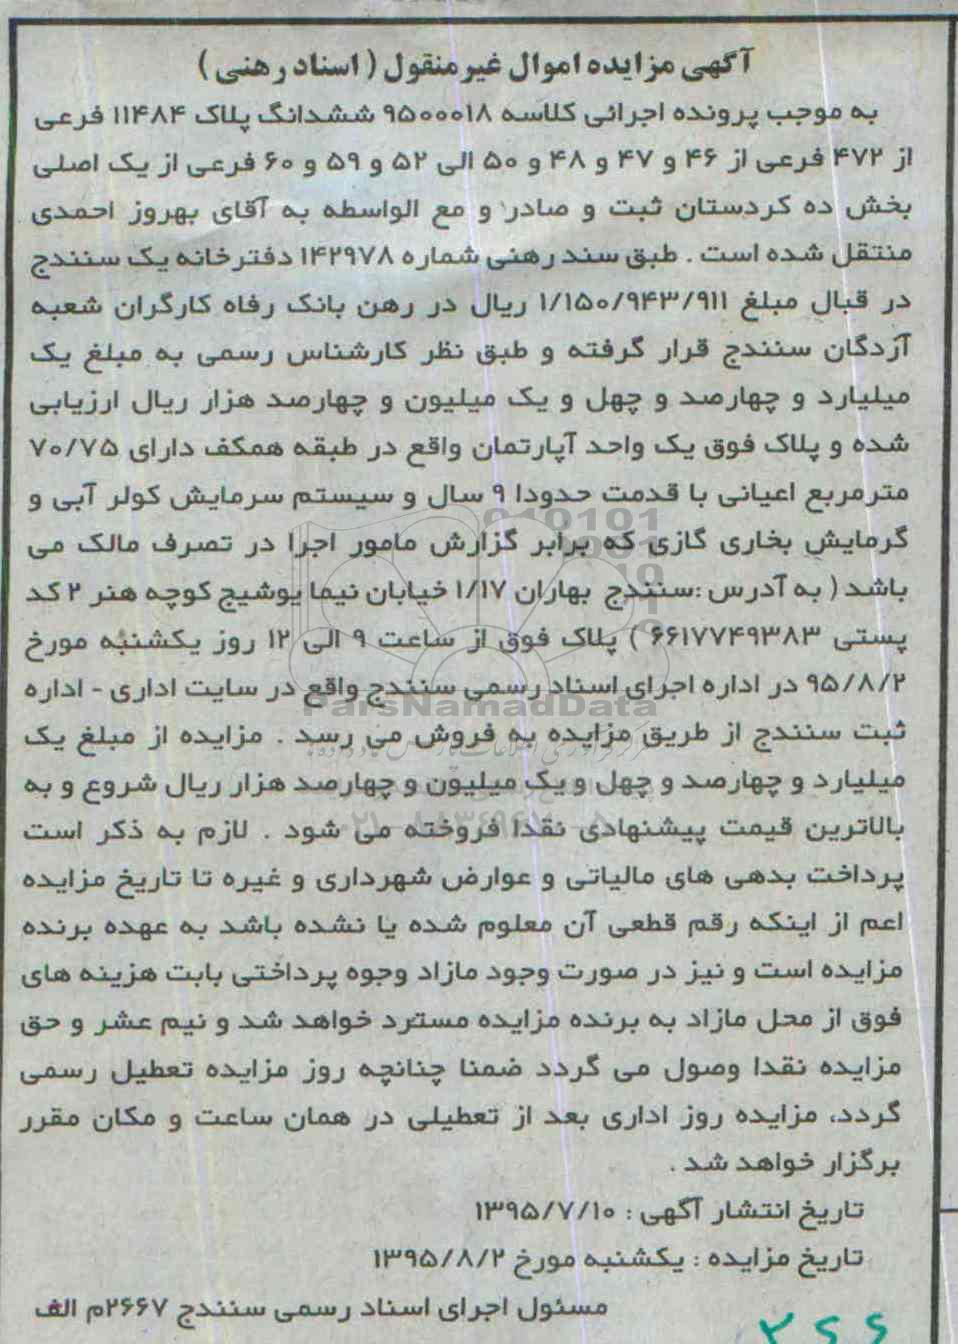 آگهی مزایده اموال غیرمنقول (اسناد رهنی)
به موجب پرونده اجرائی کلاسه ۹۵۰۰۰۱۸ ششدانگ پلاک ۱۱۴۸۴ فرعی
از ۴۷۲ فرعی از ۴۶ و ۴۷ و ۴۸ و ۵۰ الی ۵۲ و ۵۹ و ۶۰ فرعی از یک اصلی
بخش ده کردستان ثبت و صادر و مع الواسطه به آقای بهروز احمدی
منتقل شده است . طبق سند رهنی شماره ۱۴۲۹۷۸ دفترخانه یک سنندج
در قبال مبلغ ۱/۱۵۰/۹۴۳/۹۱۱ ریال در رهن بانک رفاه کارگران شعبه
آزدگان سنندج قرار گرفته و طبق نظر کارشناس رسمی به مبلغ یک
میلیارد و چهارصد و چهل و یک میلیون و چهارصد هزار ریال ارزیابی
شده و پلاک فوق یک واحد آپارتمان واقع در طبقه همکف دارای ۷۰/۷۵
مترمربع اعیانی با قدمت حدودا ۹ سال و سیستم سرمایش کولر آبی و
گرمایش بخاری گازی که برابر گزارش مامور اجرا در تصرف مالک می
باشد ( به آدرس :سنندج بهاران ۱/۱۷ خیابان نیما یوشیج کوچه هنر ۲ کد
پستی ۶۶۱۷۷۴۹۳۸۳ ) پلاک فوق از ساعت ۹ الی ۱۲ روز یکشنبه مورخ
۹۵/۸/۲ در اداره اجرای اسناد رسمی سنندج واقع در سایت اداری - اداره
ParsNamadData
ثبت سنندج از طریق مزایده به فروش می رسد . مزایده از مبلغ یک
میلیارد و چهارصد و چهل و یک میلیون و چهارصد هزار ریال شروع و به
بالاترین قیمت پیشنهادی نقدا فروخته می شود . لازم به ذکر است
پرداخت بدهی های مالیاتی و عوارض شهرداری و غیره تا تاریخ مزایده
اعم از اینکه رقم قطعی آن معلوم شده یا نشده باشد به عهده برنده
مزایده است و نیز در صورت وجود مازاد وجوه پرداختی بابت هزینه های
فوق از محل مازاد به برنده مزایده مسترد خواهد شد و نیم عشر و حق
مزایده نقدا وصول می گردد ضمنا چنانچه روز مزایده تعطیل رسمی
گردد، مزایده روز اداری بعد از تعطیلی در همان ساعت و مکان مقرر
برگزار خواهد شد .
تاریخ انتشار آگهی : ۱۳۹۵/۷/۱۰
تاریخ مزایده : یکشنبه مورخ ۱۳۹۵/۸/۲
مسئول اجرای اسناد رسمی سنندج ۲۶۶۷م الف